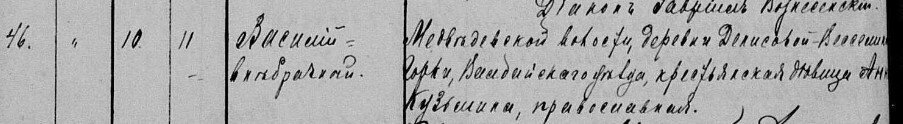 Діаконъ Гавріилъ Вознесенскій.
46. " 10. 11 Василій= Медвѣдевской волости, деревни Денисовой-
внѣбрачный. Горки, Валдайскаго уѣзда, крестьянская дѣвица Анн
Кузьмина, православная.